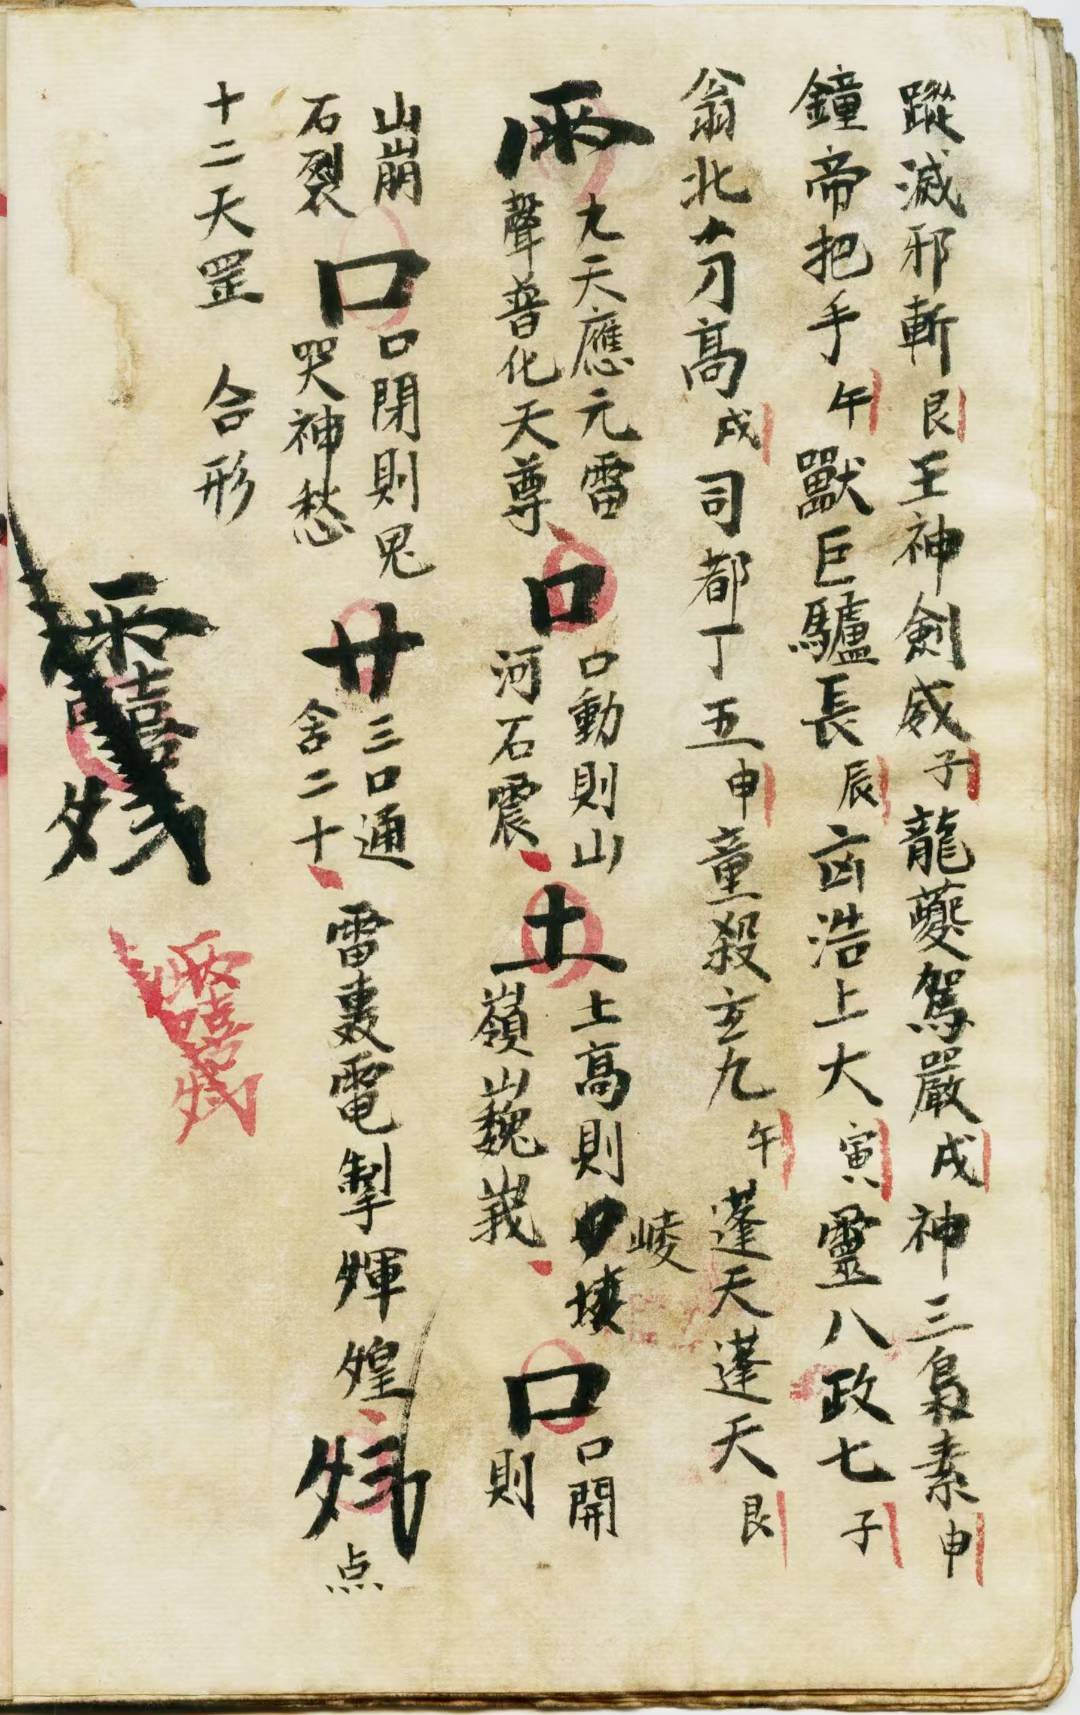 蹤滅邪斬艮王神劍威子龍夔駕嚴戌神三梟素申
鐘帝把手午獸巨驢長辰㐫浩上大寅靈八政七子
翁北刀高戌司都丁五申童殺玄九午蓬天蓬天艮
雨
九天應元雷
聲普化天尊
口
口動則山
河石震
土
土高則崚
嶺巍峩
口
口開
則
山崩
石裂
口
口閉則鬼
哭神愁
廿
三口通
舍二十
雷轟電掣輝煌
点
十二天罡 合形